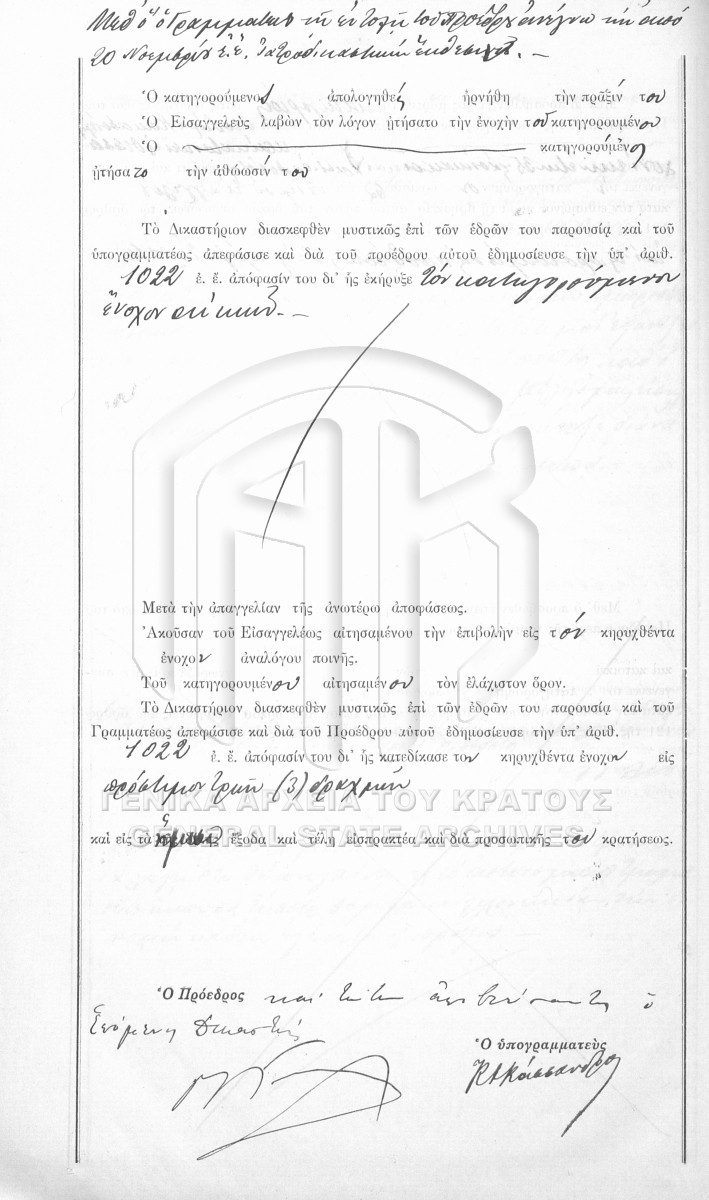 Μεθ' ὃ ὁ Γραμματεὺς τῇ ἐντολῇ τοῦ Προέδρου ἀνέγνω τὴν ἀπὸ
20 Νοεμβρίου ἐ.ἔ. Ἰατροδικαστικὴν ἔκθεσιν. —
Ὁ κατηγορούμενος ἀπολογηθεὶς ἠρνήθη τὴν πρᾶξίν του
Ὁ Εἰσαγγελεὺς λαβὼν τὸν λόγον ᾐτήσατο τὴν ἐνοχὴν τοῦ κατηγορουμένου
Ὁ κατηγορούμενος
ᾐτήσατο τὴν ἀθώωσίν του
Τὸ Δικαστήριον διασκεφθὲν μυστικῶς ἐπὶ τῶν ἑδρῶν του παρουσίᾳ καὶ τοῦ
ὑπογραμματέως ἀπεφάσισε καὶ διὰ τοῦ προέδρου αὐτοῦ ἐδημοσίευσε τὴν ὑπ' ἀριθ.
1022 ἐ. ἔ. ἀπόφασίν του δι' ἧς ἐκήρυξε τὸν κατηγορούμενον
ἔνοχον
Μετὰ τὴν ἀπαγγελίαν τῆς ἀνωτέρω ἀποφάσεως.
Ἀκοῦσαν τοῦ Εἰσαγγελέως αἰτησαμένου τὴν ἐπιβολὴν εἰς τόν κηρυχθέντα
ἔνοχον ἀναλόγου ποινῆς.
Τοῦ κατηγορουμένου αἰτησαμένου τὸν ἐλάχιστον ὅρον.
Τὸ Δικαστήριον διασκεφθὲν μυστικῶς ἐπὶ τῶν ἑδρῶν του παρουσίᾳ καὶ τοῦ
Γραμματέως ἀπεφάσισε καὶ διὰ τοῦ Προέδρου αὐτοῦ ἐδημοσίευσε τὴν ὑπ' ἀριθ.
1022 ἐ. ἔ. ἀπόφασίν του δι' ἧς κατεδίκασε τον κηρυχθέντα ἔνοχον εἰς
πρόστιμον τριῶν (3) δραχμῶν
ΓΕΝΙΚΑ ΑΡΧΕΙΑ ΤΟΥ ΚΡΑΤΟΥΣ
GENERAL STATE ARCHIVES
καὶ εἰς τὰ ἔξοδα καὶ τέλη εἰσπρακτέα καὶ διὰ προσωπικῆς του κρατήσεως.
Ὁ Πρόεδρος ὁ
Δικαστής
Ὁ ὑπογραμματεὺς
Κάσσανδρος